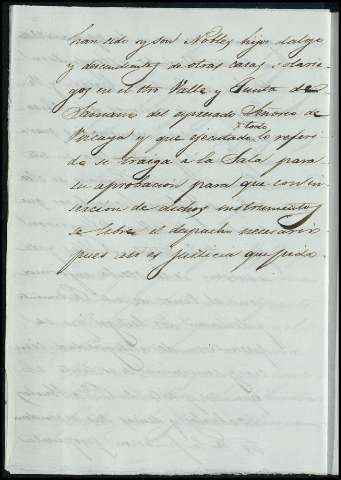 han sido y son Nobles hijos dalgo
y descendientes de otras casas solarie-
gas en el Valle y Junta de
Samano del espresado Señorio de
Vizcaya y que ejecutado todo lo referi-
do se traiga a la Sala para
su aprobacion para que con in-
sercion de dichos instrumentos
se libre el despacho necesario
pues asi es justicia que pido.